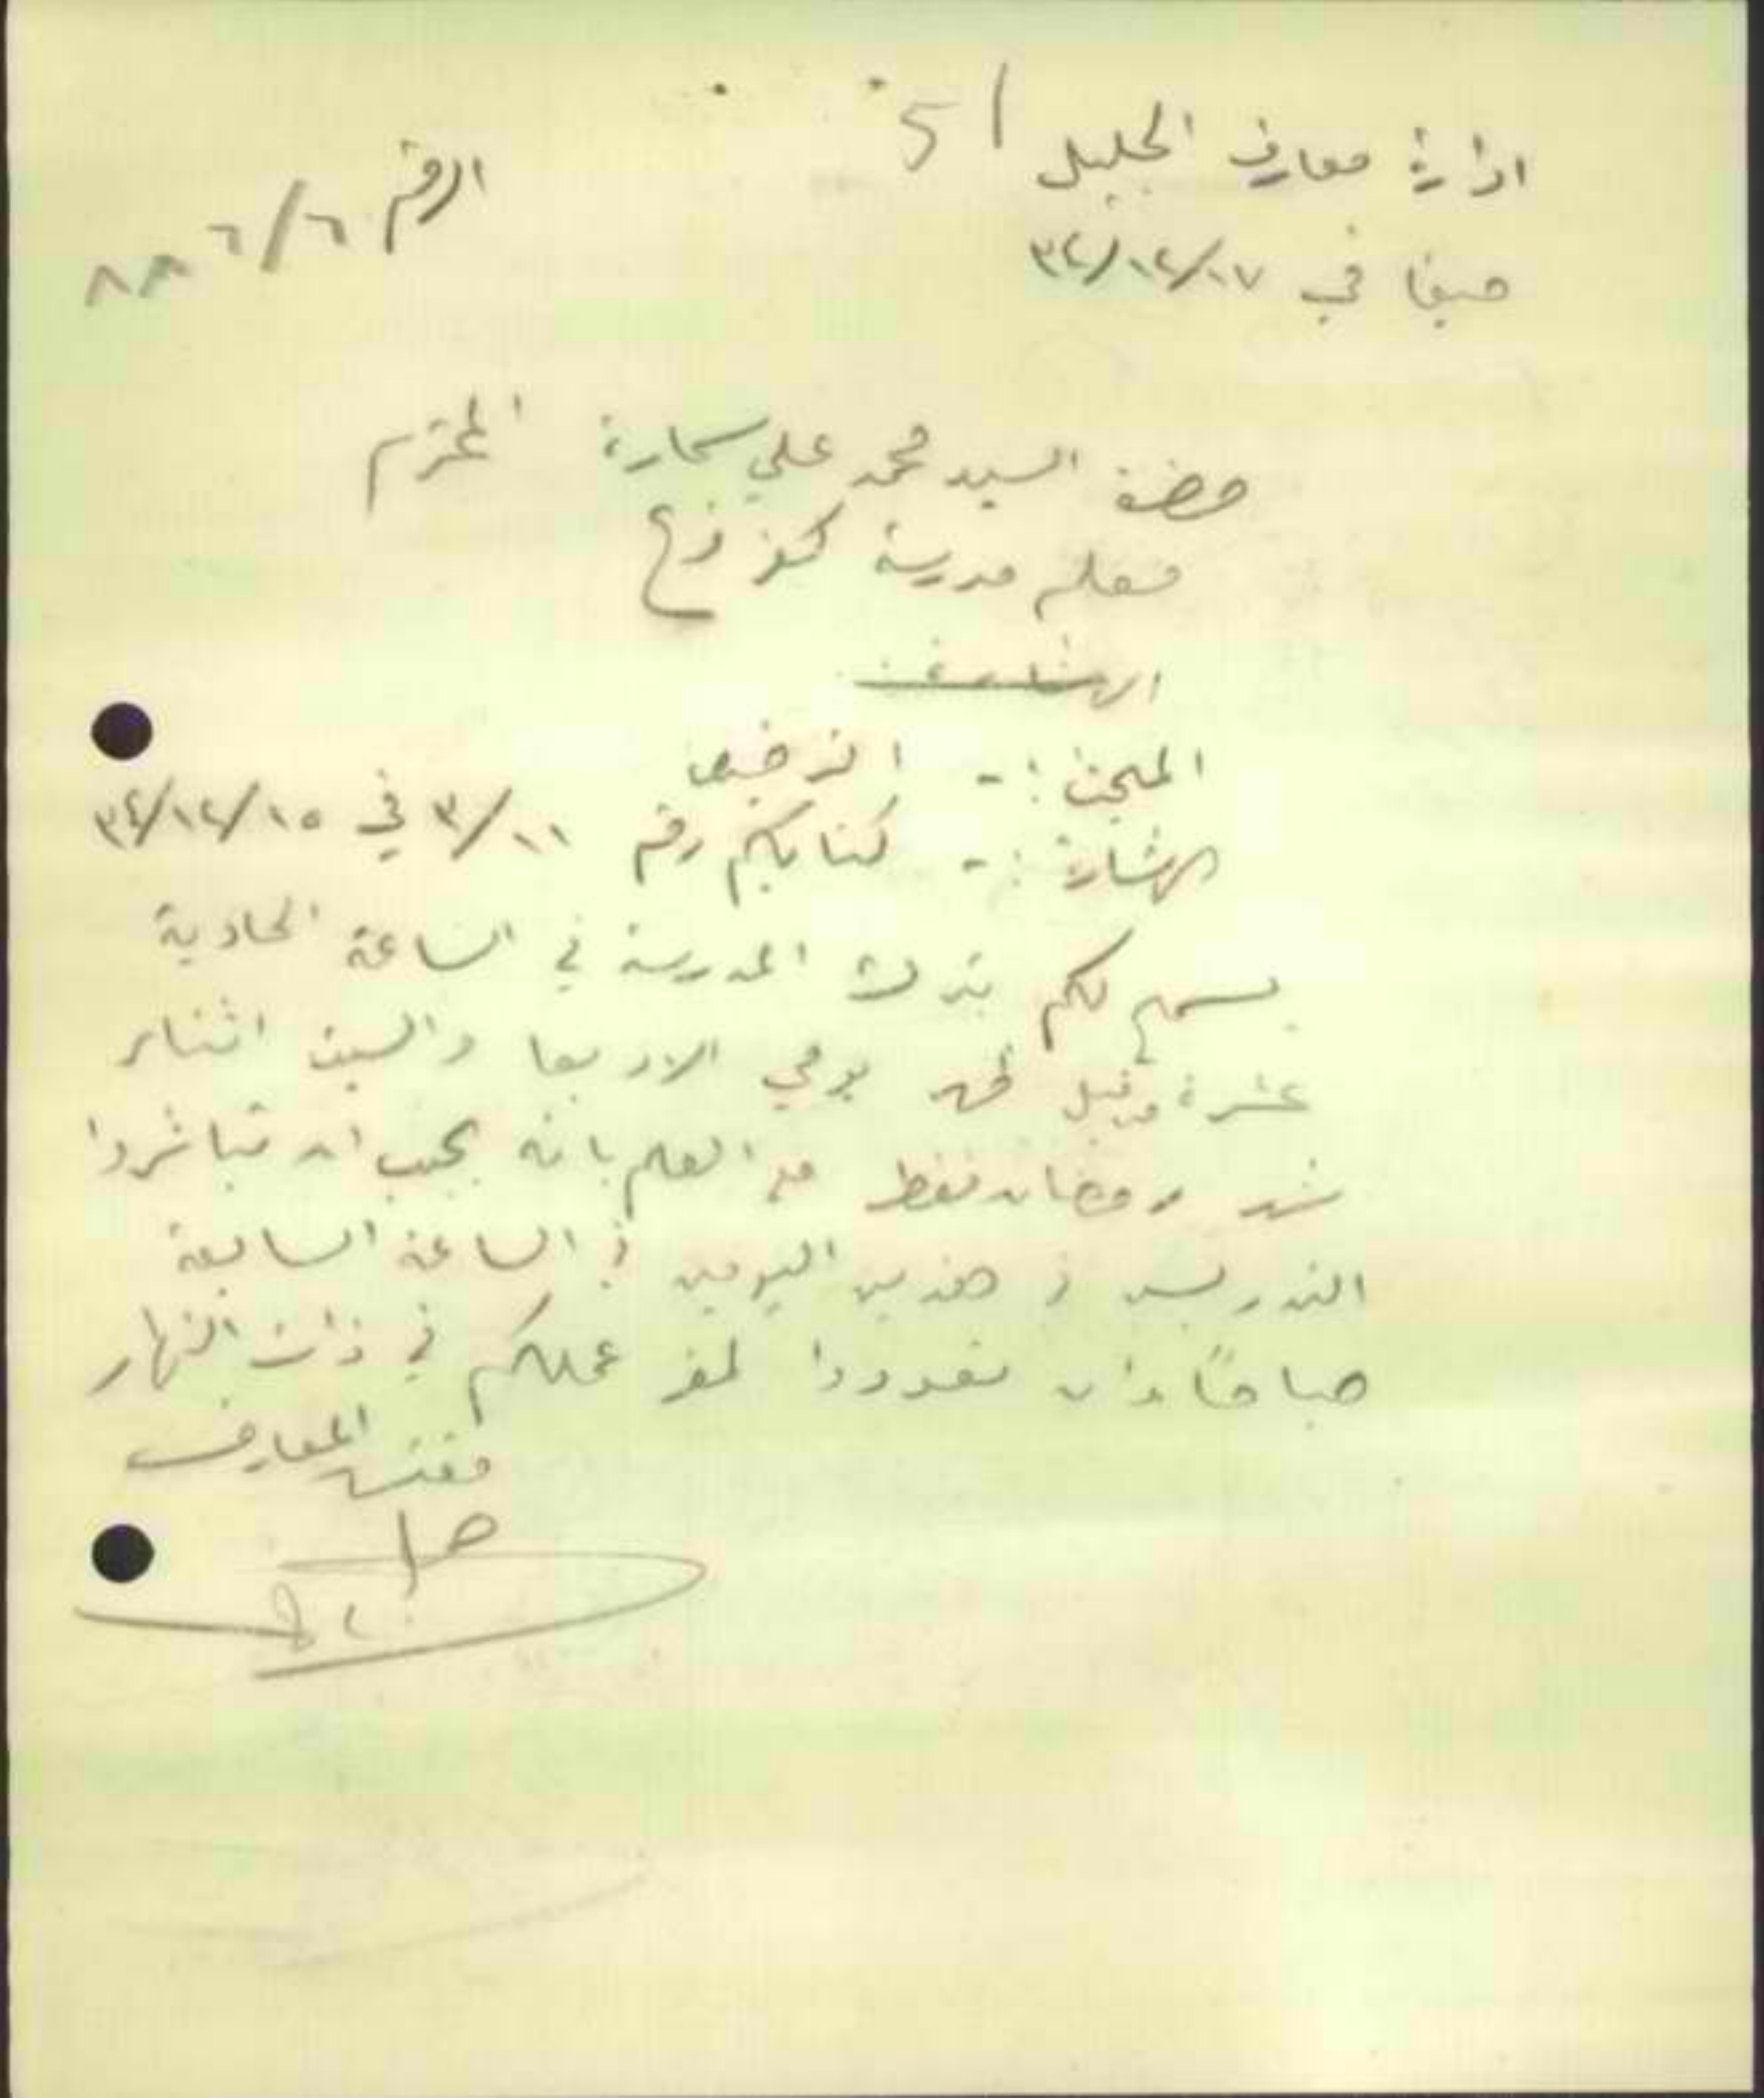 ادارة معارف الجليل 51
الرقم ٦/٦ ٨٨
حيفا في ٣٤/١٢/١٧
حضرة السيد محمد علي سمارة المحترم
معلم مدرسة كفر قرع
المبحث :- الترخيص
الاشارة :- كتابكم رقم ٣/١١ في ٣٤/١٢/١٥
يسمح لكم بترك المدرسة في الساعة الحادية
عشرة من قبل ظهر يومي الاربعا والسبت اثناء
شهر رمضان فقط مع العلم بانه يجب ان تباشروا
التدريس في هذين اليومين في الساعة السابعة
صباحًا وان تعودوا لمقر عملكم في ذات النهار
مفتش المعارف